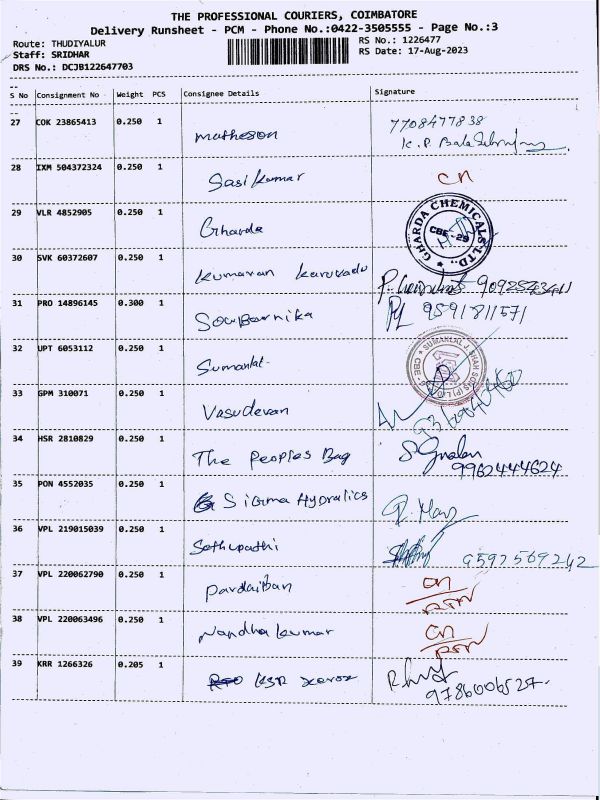 THE PROFESSIONAL COURIERS, COIMBATORE
Delivery Runsheet - PCM - Phone No.:0422-3505555 - Page No.:3
Route: THUDIYALUR RS No.: 1226477
Staff: SRIDHAR RS Date: 17-Aug-2023
DRS No.: DCJB122647703
S No Consignment No Weight PCS Consignee Details Signature
27 COK 23865413 0.250 1 matheson 7708477838
K.P.
28 IXM 504372324 0.250 1 Sasikumar CN
29 VLR 4852905 0.250 1 Gharda GHARDA CHEMICALS LTD. CBE-29
30 SVK 60372607 0.250 1 Kumaran Karuvadu
31 PRO 14896145 0.300 1 Souparnika 9591811571
32 UPT 6053112 0.250 1 Sumanlal SUMANLAL J. SHAH SONS (P) LTD CBE
33 GPM 310071 0.250 1 Vasudevan
34 HSR 2810829 0.250 1 The Peoples Bag 9962444624
35 PON 4552035 1 Sigma Hydralics
36 VPL 219015039 0.250 1 Sathupathi 9597569242
37 VPL 220062790 0.250 1 Pardaiban CN
RTN
38 VPL 220063496 0.250 1 Nandhakumar CN
RTN
39 KRR 1266326 0.205 1 KSR Xerox
9786006527